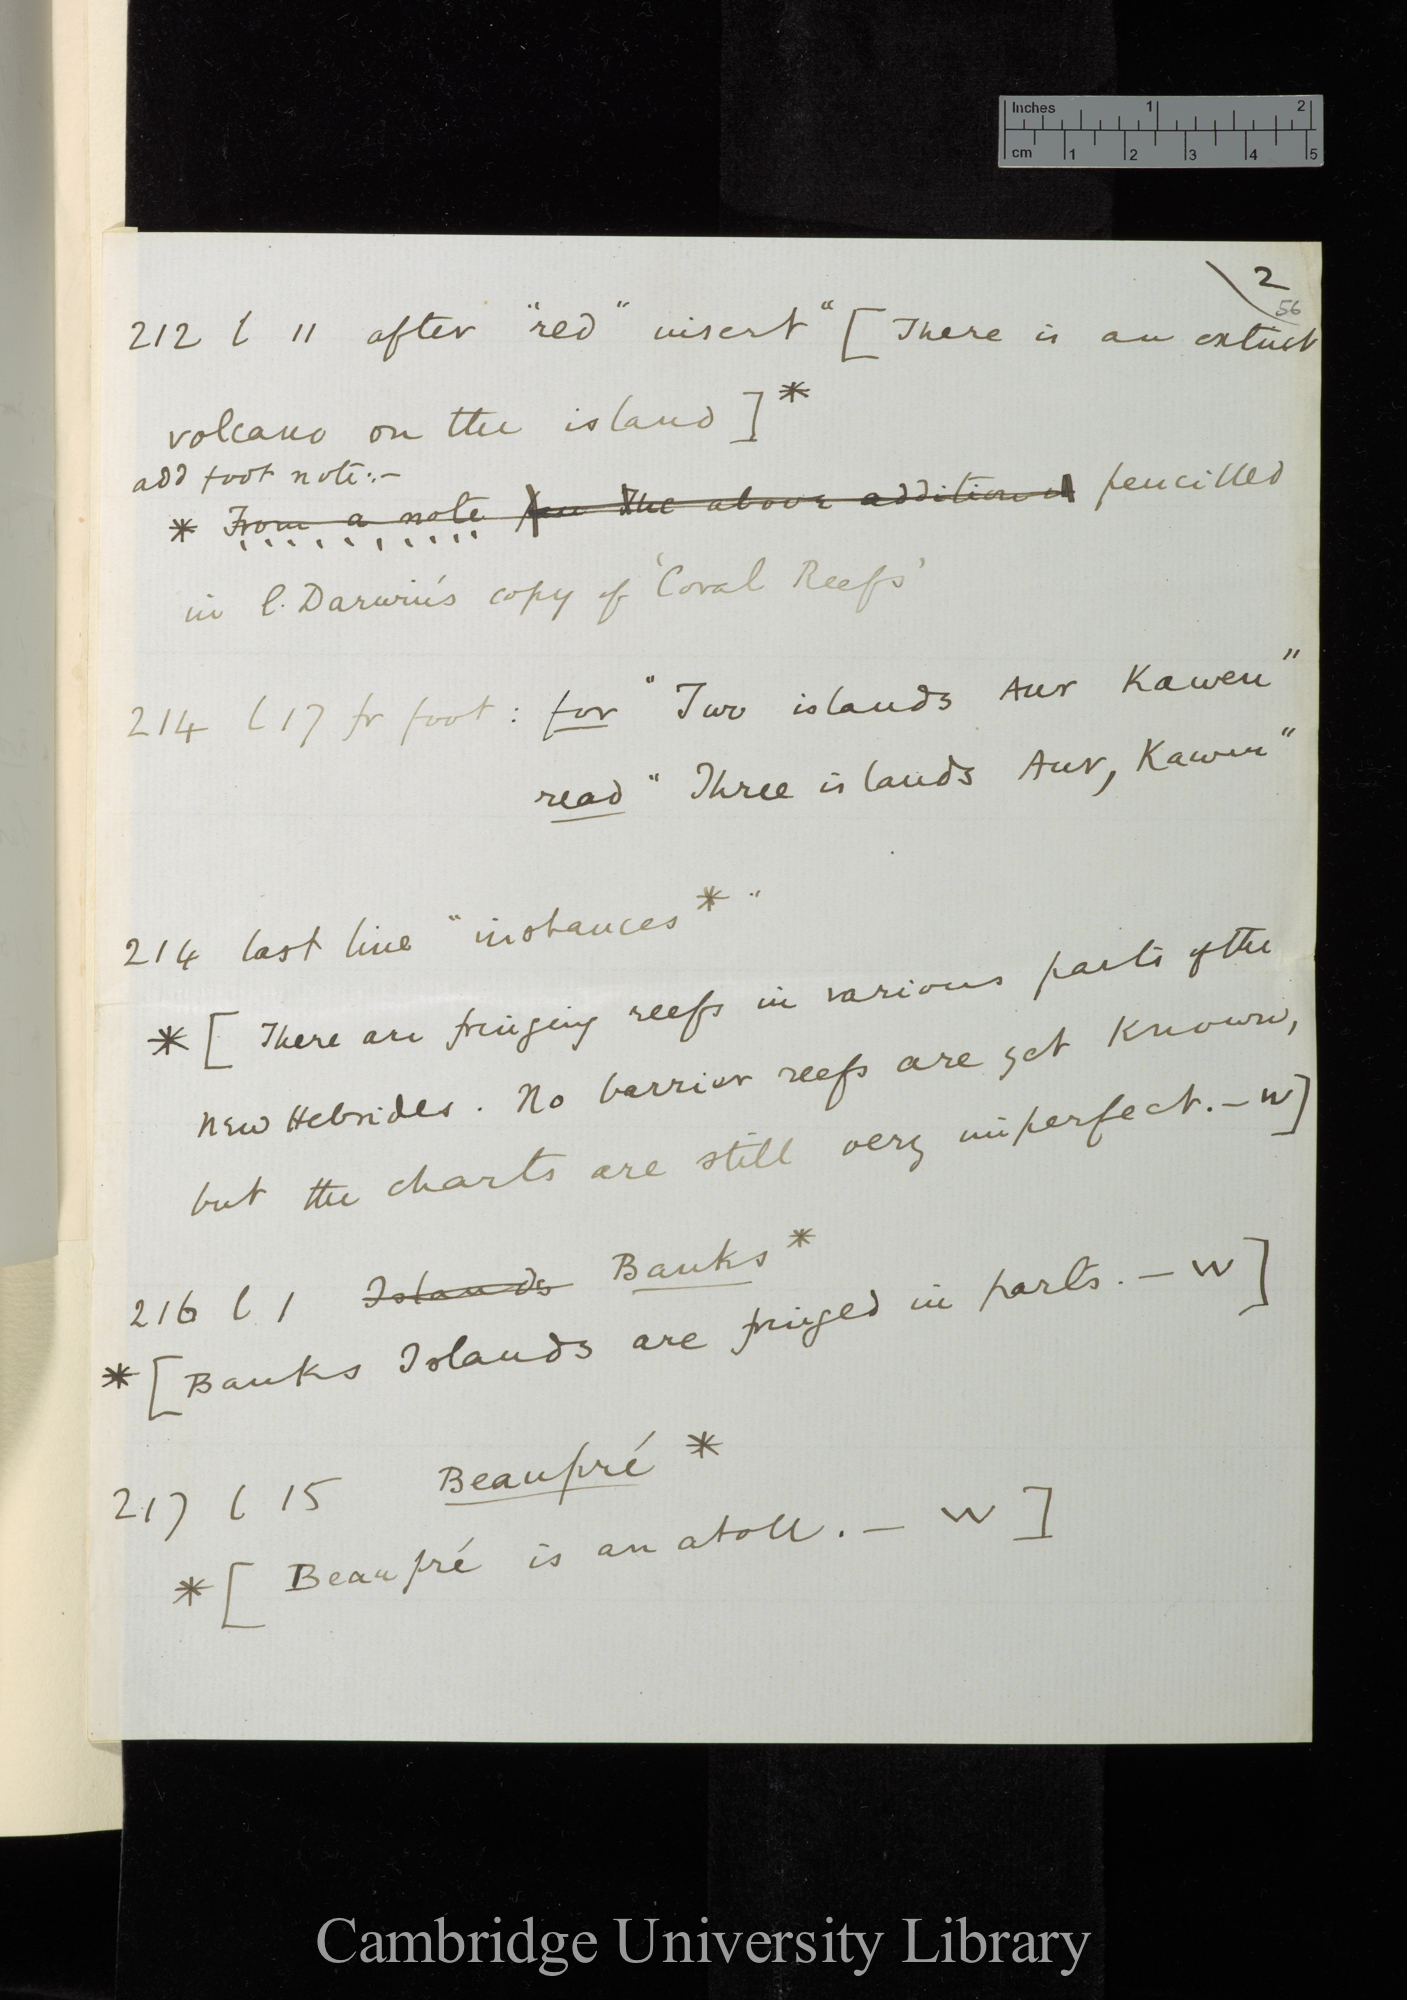 Inches 1 2
cm 1 2 3 4 5
2
56
212 l 11 after "red" insert "[There is an extinct
volcano on the island]*
add foot note:-
* From a note The above addition is pencilled
in C. Darwin's copy of 'Coral Reefs'
214 l 17 fr foot: for "Two islands Aur Kawen"
read "Three islands Aur, Kawen"
214 last line "instances*"
*[There are fringing reefs in various parts of the
New Hebrides. No barrier reefs are yet known,
but the charts are still very imperfect. — W]
216 l 1 Islands Banks*
*[Banks Islands are fringed in parts. — W]
217 l 15 Beaupré*
*[Beaupré is an atoll. — W]
Cambridge University Library